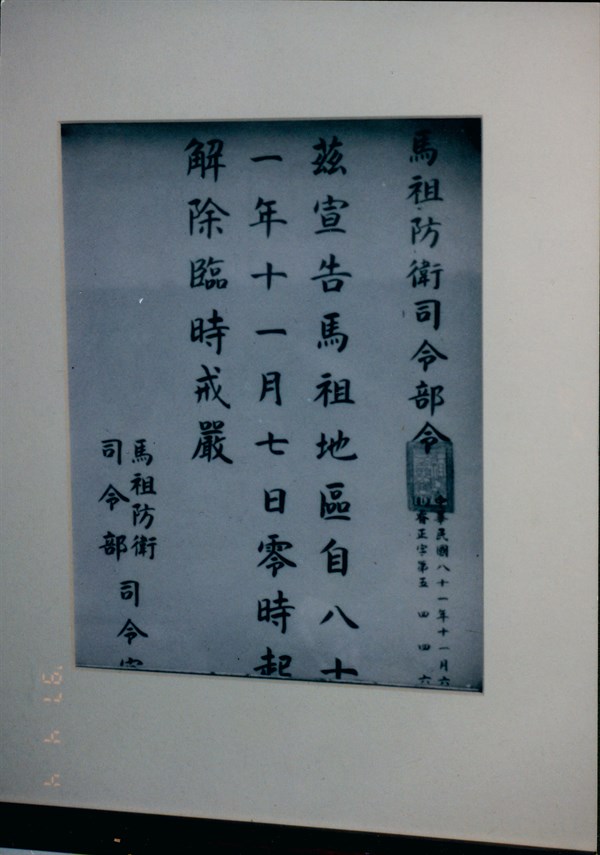 馬祖防衛司令部令
中華民國八十一年十一月六
正字第五四四六
茲宣告馬祖地區自八十
一年十一月七日零時起
解除臨時戒嚴
馬祖防衛
司令部
司令
'97 4 4